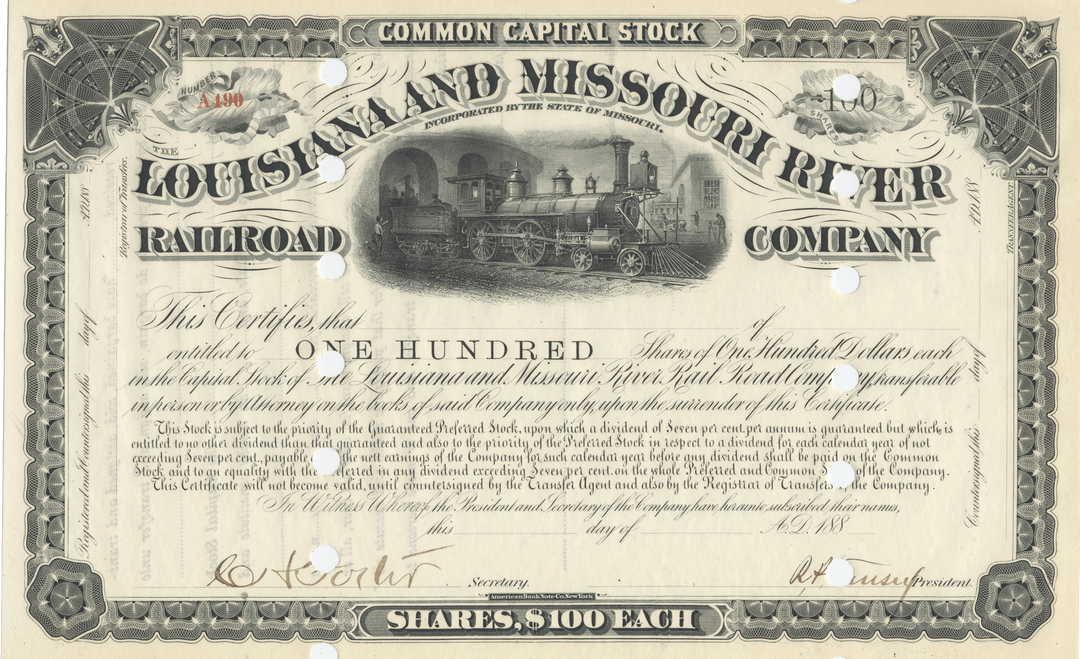 COMMON CAPITAL STOCK
NUMBER
A190
100
SHARES
THE
LOUISIANA AND MISSOURI RIVER
INCORPORATED BY THE STATE OF MISSOURI.
RAILROAD COMPANY
This Certifies, that of
entitled to ONE HUNDRED Shares of One Hundred Dollars each
in the Capital Stock of The Louisiana and Missouri River Rail Road Company, transferable
in person or by Attorney on the books of said Company only, upon the surrender of this Certificate.
This Stock is subject to the priority of the Guaranteed Preferred Stock, upon which a dividend of Seven per cent. per annum is guaranteed but which is
entitled to no other dividend than that guaranteed and also to the priority of the Preferred Stock in respect to a dividend for each calendar year of not
exceeding Seven per cent., payable the nett earnings of the Company for such calendar year before any dividend shall be paid on the Common
Stock and to an equality with the Preferred in any dividend exceeding Seven per cent. on the whole Preferred and Common of the Company.
This Certificate will not become valid, until countersigned by the Transfer Agent and also by the Registrar of Transfers of the Company.
In Witness Whereof, the President and Secretary of the Company have hereunto subscribed their names,
this day of A.D. 188
Secretary. President.
American Bank Note Co. New York
SHARES, $100 EACH
Registered and Countersigned this day of A.D. 188
Registrar of Transfers.
Countersigned this day of A.D. 188
TRANSFER AGENT.